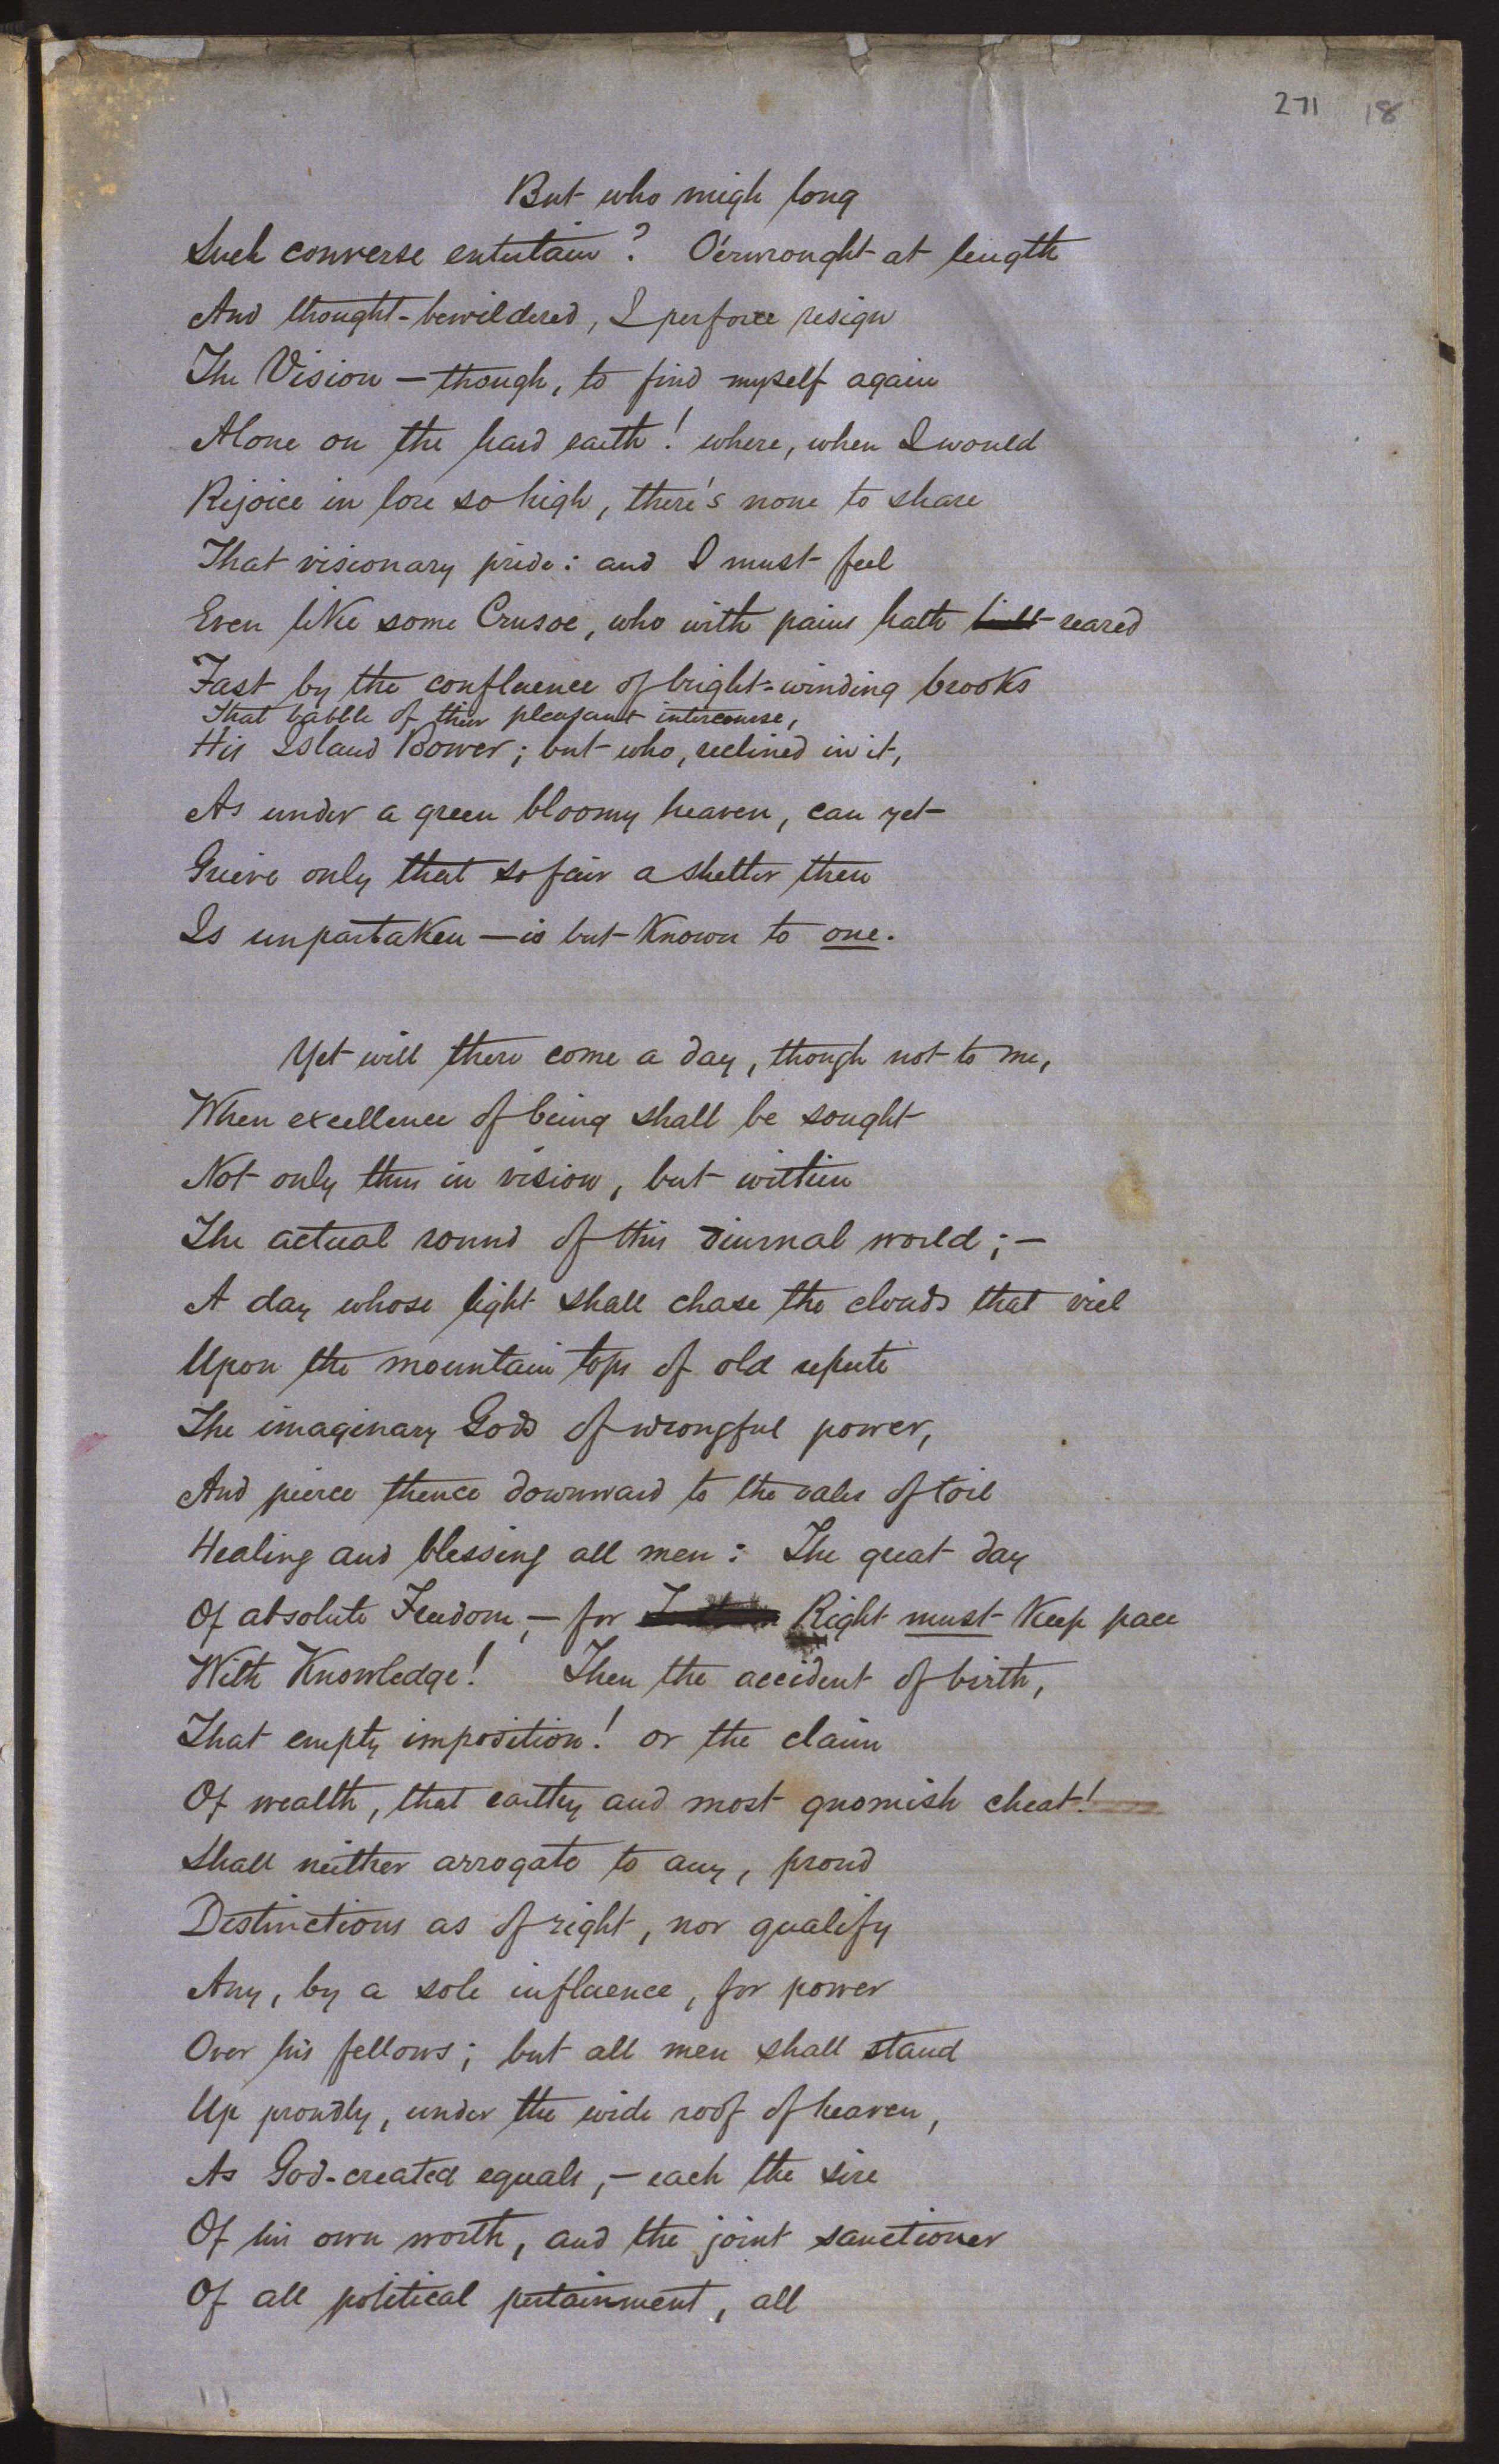 271 18
But who migh long
Such converse entertain? O'erwrought at length
And thought-bewildered, I perforce resign
The Vision — though, to find myself again
Alone on the hard earth! where, when I would
Rejoice in lore so high, there's none to share
That visionary pride: and I must feel
Even like some Crusoe, who with pains hath built reared
Fast by the confluence of bright-winding brooks
That babble of their pleasant intercourse,
His Island Bower; but who, reclined in it,
As under a green bloomy heaven, can yet
Grieve only that so fair a shelter there
Is unpartaken — is but known to one.
Yet will there come a day, though not to me,
When excellence of being shall be sought
Not only thus in vision, but within
The actual round of this diurnal world; —
A day whose light shall chase the clouds that viel
Upon the mountain tops of old repute
The imaginary Gods of wrongful power,
And pierce thence downward to the vales of toil
Healing and blessing all men: The great day
Of absolute Freedom, — for Right must keep pace
With Knowledge! Then the accident of birth,
That empty imposition! or the claim
Of wealth, that earthy and most gnomish cheat!
Shall neither arrogate to any, proud
Distinctions as of right, nor qualify
Any, by a sole influence, for power
Over his fellows; but all men shall stand
Up proudly, under the wide roof of heaven,
As God-created equals, — each the sire
Of his own worth, and the joint sanctioner
Of all political pertainment, all